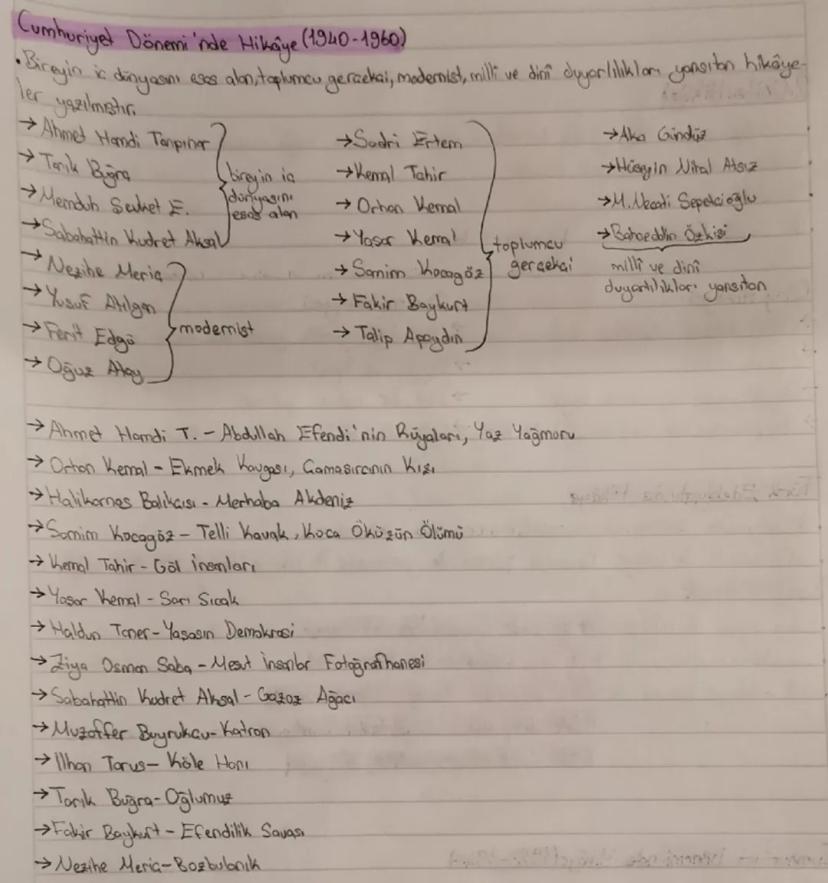 Cumhuriyet Dönemi'nde Hikâye (1940-1960)
• Bireyin iç dünyasını esas alan, toplumcu gerçekçi, modernist, millî ve dinî duyarlılıkları yansıtan hikâye-
ler yazılmıştır.
→ Ahmet Hamdi Tanpınar
→ Tarık Buğra
→ Memduh Şevket E.
→ Sabahattin Kudret Aksal
bireyin iç
dünyasını
esas alan
→ Nezihe Meriç
→ Yusuf Atılgan
→ Ferit Edgü
→ Oğuz Atay
modernist
→ Sadri Ertem
→ Kemal Tahir
→ Orhan Kemal
→ Yaşar Kemal
→ Samim Kocagöz
→ Fakir Baykurt
→ Talip Apaydın
toplumcu
gerçekçi
→ Aka Gündüz
→ Hüseyin Nihal Atsız
→ M. Necati Sepetçioğlu
→ Bahaeddin Özkişi
millî ve dinî
duyarlılıkları yansıtan
→ Ahmet Hamdi T. - Abdullah Efendi'nin Rüyaları, Yaz Yağmuru
→ Orhan Kemal - Ekmek Kavgası, Çamaşırcının Kızı
→ Halikarnas Balıkçısı - Merhaba Akdeniz
→ Samim Kocagöz - Telli Kavak, Koca Öküzün Ölümü
→ Kemal Tahir - Göl İnsanları
→ Yaşar Kemal - Sarı Sıcak
→ Haldun Taner - Yaşasın Demokrasi
→ Ziya Osman Saba - Mesut İnsanlar Fotoğrafhanesi
→ Sabahattin Kudret Aksal - Gazoz Ağacı
→ Muzaffer Buyrukçu - Katran
→ İlhan Tarus - Köle Hanı
→ Tarık Buğra - Oğlumuz
→ Fakir Baykurt - Efendilik Savaşı
→ Nezihe Meriç - Bozbulanık